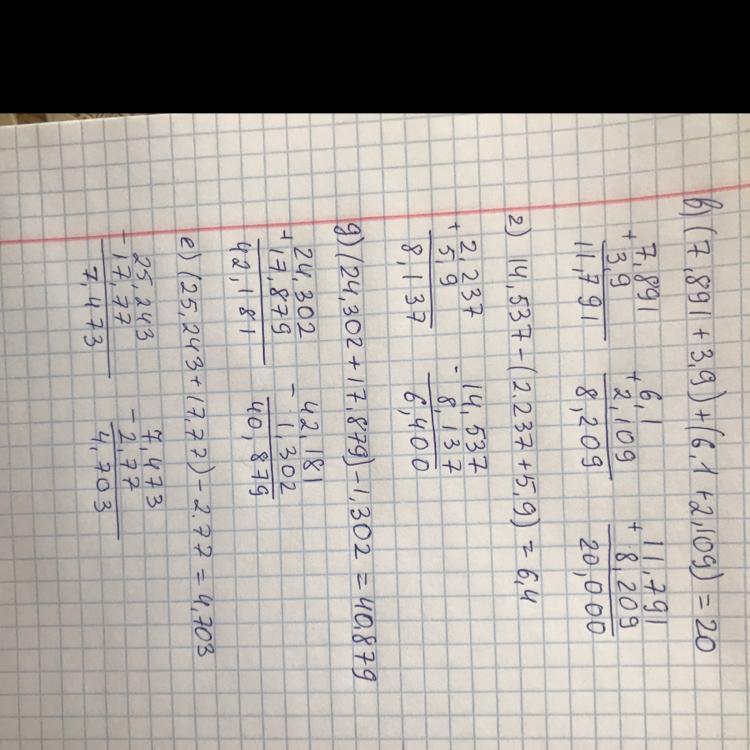 в) (7,891 + 3,9) + (6,1 + 2,109) = 20
7,891 6,1 11,791
+ 3,9 + 2,109 + 8,209
11,791 8,209 20,000
г) 14,537 - (2.237 + 5,9) = 6,4
2,237 - 14,537
+ 5,9 8,137
8,137 6,400
д) (24,302 + 17,879) - 1,302 = 40,879
24,302 42,181
+ 17,879 - 1,302
42,181 40,879
е) (25,243 + 17,77) - 2.77 = 4,703
25,243 7,473
- 17,77 - 2,77
7,473 4,703